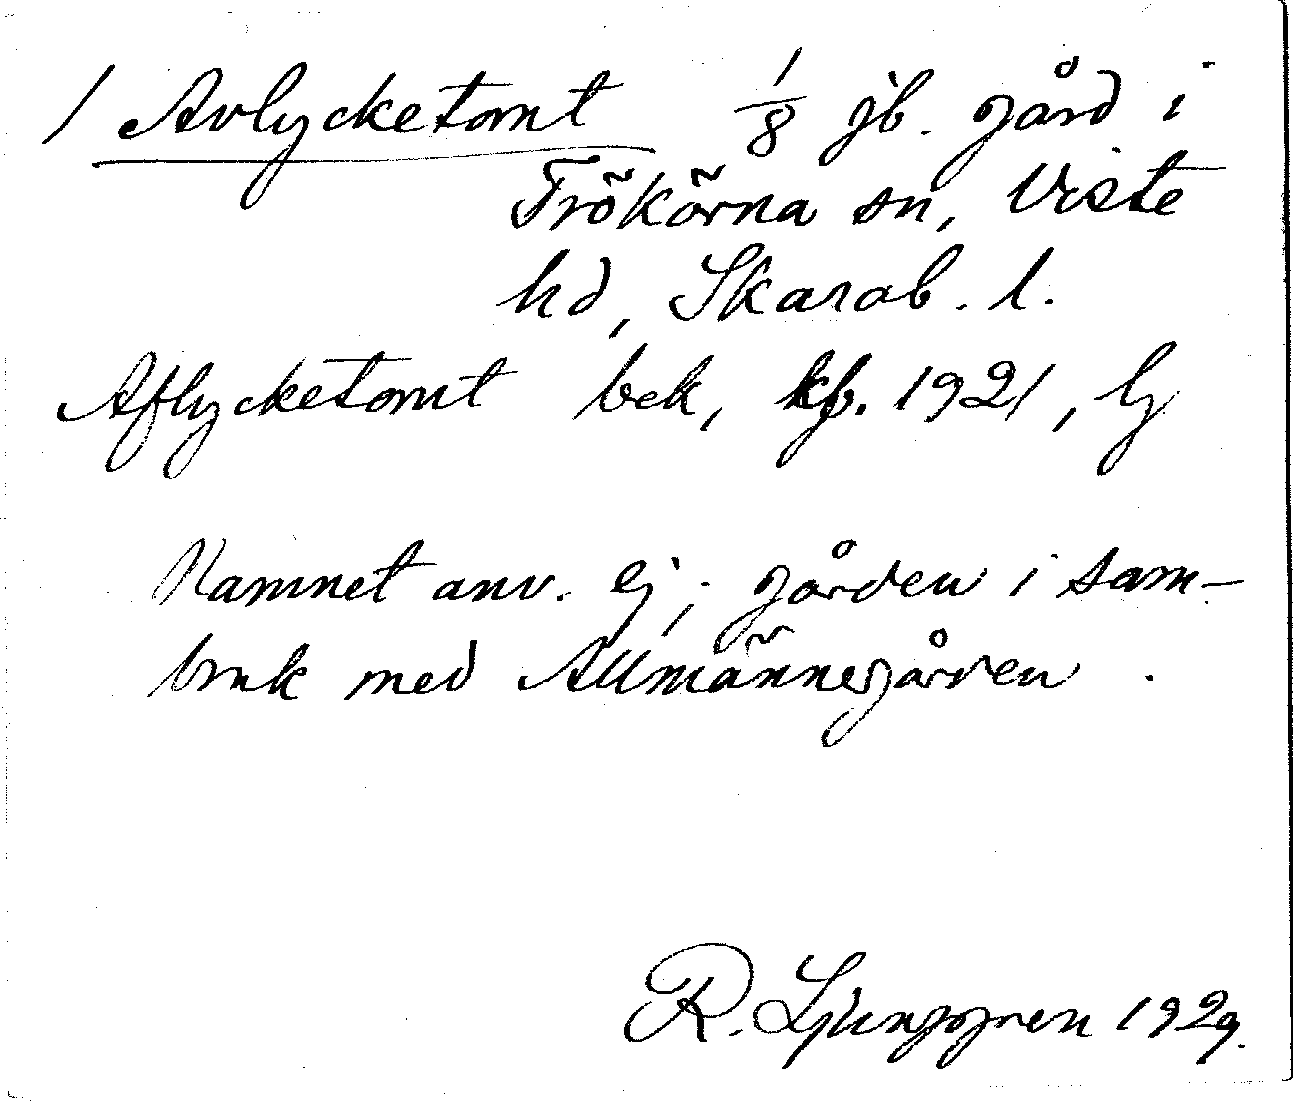 / Avlycketomt 1/8 jb. gård i
Frökörna sn, Viste
hd, Skarab. l.
Aflycketomt bek, kb. 1921, lj
Namnet anv. ej; gården i sam-
bruk med Allmännegården.
R. Ljunggren 1929.